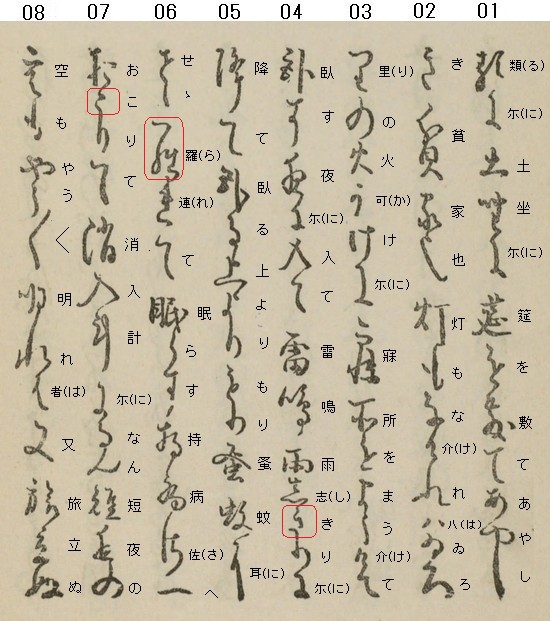 08 07 06 05 04 03 02 01
類(る)尓(に)土坐尓(に)筵を敷てあやし
き貧家也灯もな介(け)れ八(は)ゐろ
里(り)の火可(か)け尓(に)寐所をまう介(け)て
臥す夜尓(に)入て雷鳴雨志(し)きり尓(に)
降て臥る上よりもり蚤蚊耳(に)
せゝ羅(ら)連(れ)て眠らす持病佐(さ)へ
おこりて消入計尓(に)なん短夜の
空もやう〱明れ者(は)又旅立ぬ